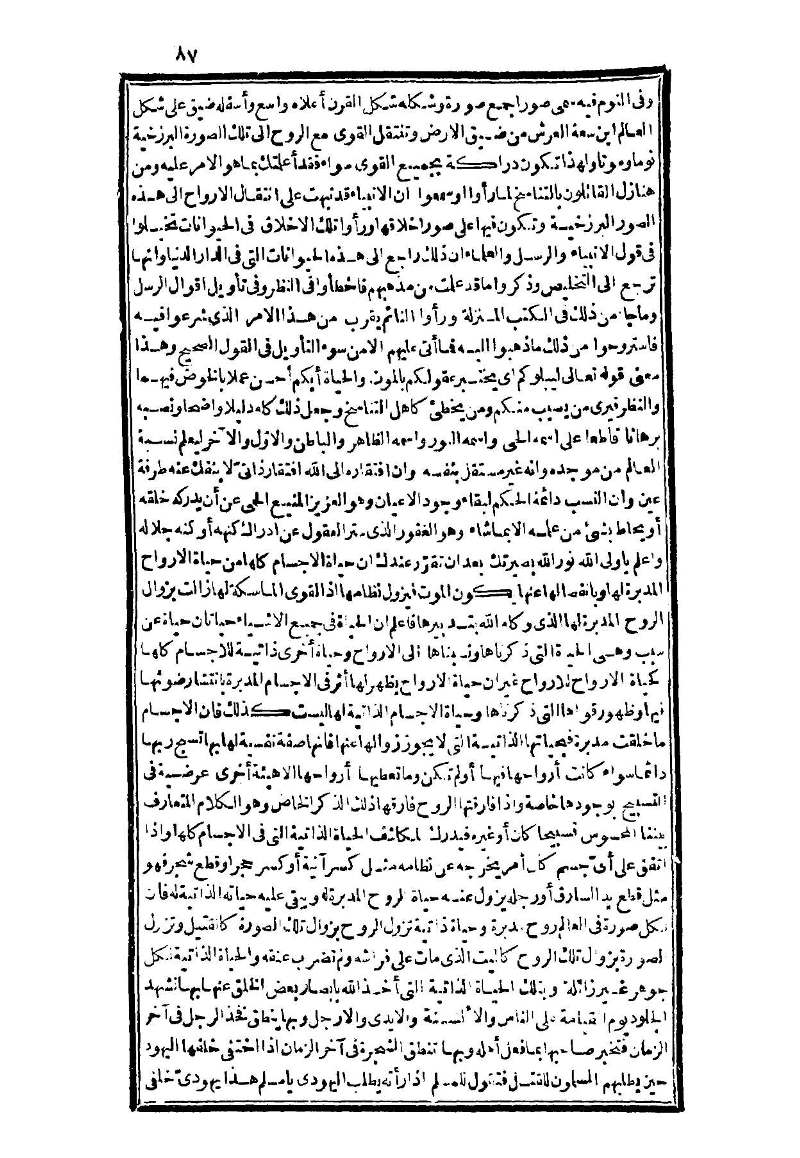 ٨٧
وفى النوم فيه هى صور اجمع صورة وشكله شكل القرن أعلاه واسع وأسفله ضيق على شكل
العالم اين سعة العرش من ضيق الارض وتنتقل القوى مع الروح الى تلك الصورة البرزخية
نوما وموتا ولهذا تكون دراكة بجميع القوى سواء فقد أعلمتك بما هو الامر عليه ومن
هنازل القائلون بالتناسخ لما رأوا او سمعوا ان الانبياء قد نبهت على انتقال الارواح الى هذه
الصور البرزخية وتكون فيها على صور اخلاقها ورأوا تلك الاخلاق فى الحيوانات تخيلوا
فى قول الانبياء والرسل والعلماء ان ذلك راجع الى هذه الحيوانات التى فى الدار الدنيا وانها
ترجع الى التخليص وذكروا ما قد علمت من مذهبهم فاخطأوا فى النظر وفى تأويل اقوال الرسل
وما جاء من ذلك فى الكتب المنزلة ورأوا النائم يقرب من هذا الامر الذى شرعوا فيه
فاستروحوا من ذلك ما ذهبوا اليه فما أتى عليهم الا من سوء التأويل فى القول الصحيح وهذا
معنى قوله تعالى ليبلوكم اى يختبر عقولكم بالموت والحياة أيكم أحسن عملا بالخوض فيهما
والنظر فيرى من يصيب منكم ومن يخطئ كاهل التناسخ وجعل ذلك كله دليلا واضحا ونصبه
برهانا قاطعا على اسمه الحى واسمه النور واسمه الظاهر والباطن والاول والآخر ليعلم نسبة
العالم من موجده وانه غير مستقل بنفسه وان افتقاره الى الله افتقار ذاتى لا ينفك عنه طرفة
عين وأن النسب دائمة الحكم لبقاء وجود الاعيان وهو العزيز المنيع الحمى عن أن يدركه خلقه
أو يحاط بشئ من علمه الا بما شاء وهو الغفور الذى ستر العقول عن ادراك كنهه أو كنه جلاله
واعلم يا ولى الله نور الله بصيرتك بعد ان تقرر عندك ان حياة الاجسام كلها من حياة الارواح
المدبرة لها وبانفصالها عنها يكون الموت فيزول نظامها اذ القوى الماسكة لها زالت بزوال
الروح المدبرة لها الذى وكله الله بتدبيرها فاعلم ان الحياة فى جميع الاشياء حياتان حياة عن
سبب وهى الحياة التى ذكرناها ونسبناها الى الارواح وحياة أخرى ذاتية للاجسام كلها
كحياة الارواح للارواح غير ان حياة الارواح يظهر لها أثر فى الاجسام المدبرة بانتشار ضوئها
فيها وظهور قواها التى ذكرناها وحياة الاجسام الذاتية لها ليست كذلك فان الاجسام
ما خلقت مدبرة فبحياتها الذاتية التى لا يجوز زوالها عنها فانها صفة نفسية لها بها تسبح ربها
دائما سواء كانت أرواحها فيها أو لم تكن وما تعطيها أرواحها الا هيئة أخرى عرضية فى
التسبيح بوجودها خاصة واذا فارقتها الروح فارقها ذلك الذكر الخاص وهو الكلام المتعارف
بيننا المحسوس تسبيحا كان أو غيره فيدرك المكاشف الحياة الذاتية التى فى الاجسام كلها واذا
اتفق على أى جسم كان أمر يخرجه عن نظامه مثل كسر آنية أو كسر حجر او قطع شجر فهو
مثل قطع يد السارق أو رجله يزول عنه حياة الروح المدبرة له ويبقى عليه حياته الذاتية له فان
لكل صورة فى العالم روح مدبرة وحياة ذاتية تزول الروح بزوال تلك الصورة كالقتيل وتزول
الصورة بزوال تلك الروح كالميت الذى مات على فراشه ولم تضرب عنقه والحياة الذاتية لكل
جوهر غير زائلة وبتلك الحياة الذاتية التى أخذ الله بابصار بعض الخلق عنها بها تشهد
الجلود يوم القيامة على الناس والألسنة والايدى والارجل وبها ينطق فخذ الرجل فى آخر
الزمان فتخبر صاحبها بما فعل أهله وبها تنطق الشجرة فى آخر الزمان اذا اختفى خلفها اليهود
حين يطلبهم المسلمون للقتل فتقول للمسلم اذا رأته يطلب اليهودى يا مسلم هذا يهودى خلفى